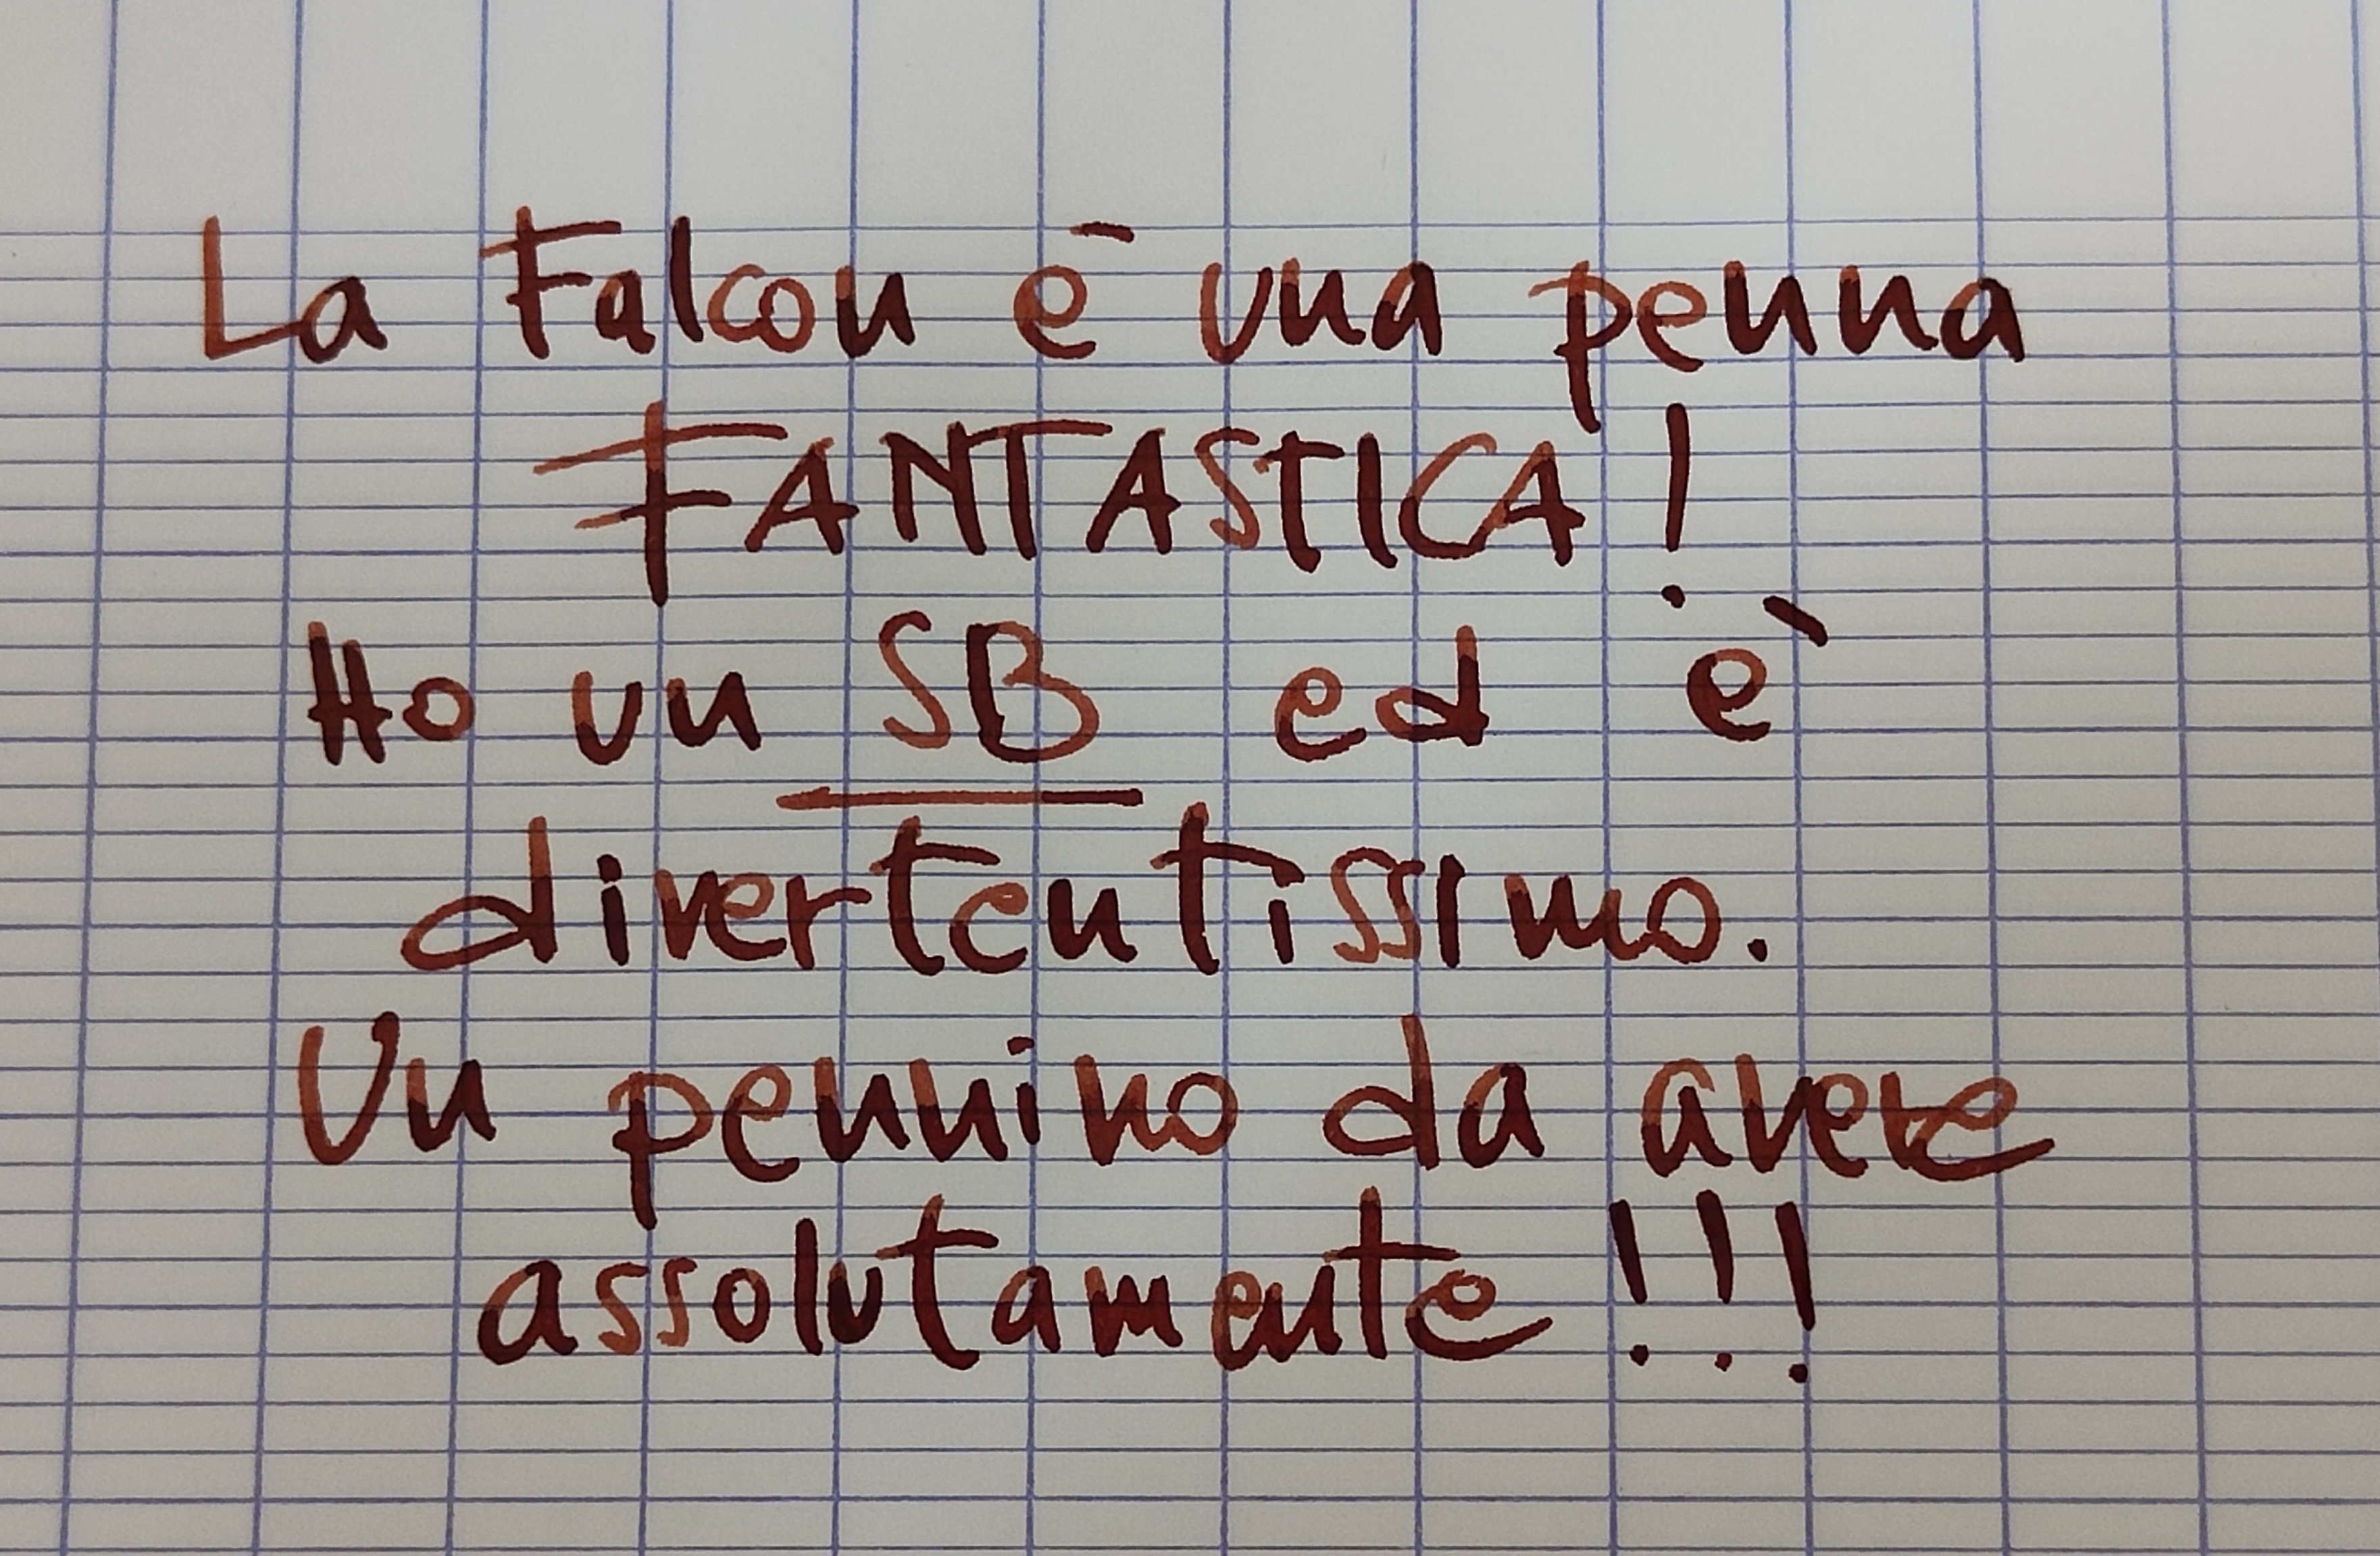 La Falcon è una penna
FANTASTICA!
Ho un SB ed è
divertentissimo.
Un pennino da avere
assolutamente!!!